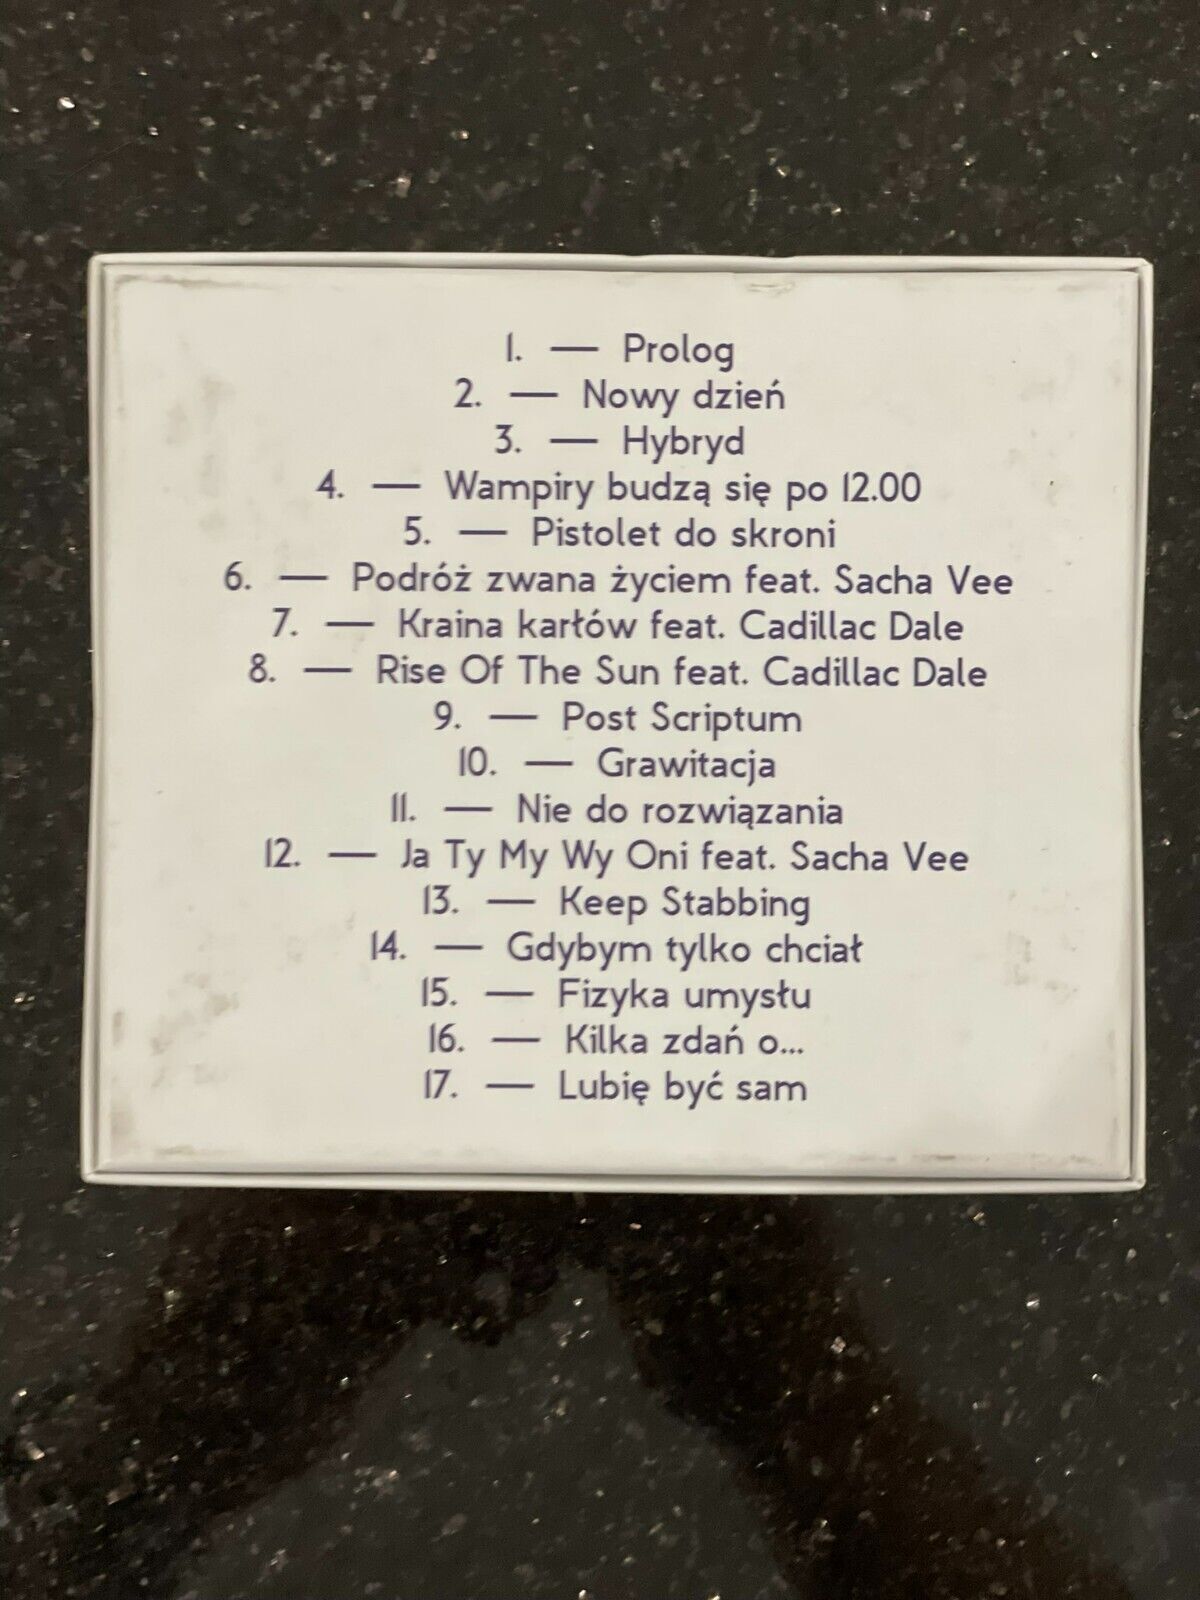 1. — Prolog
2. — Nowy dzień
3. — Hybryd
4. — Wampiry budzą się po 12.00
5. — Pistolet do skroni
6. — Podróż zwana życiem feat. Sacha Vee
7. — Kraina karłów feat. Cadillac Dale
8. — Rise Of The Sun feat. Cadillac Dale
9. — Post Scriptum
10. — Grawitacja
11. — Nie do rozwiązania
12. — Ja Ty My Wy Oni feat. Sacha Vee
13. — Keep Stabbing
14. — Gdybym tylko chciał
15. — Fizyka umysłu
16. — Kilka zdań o...
17. — Lubię być sam